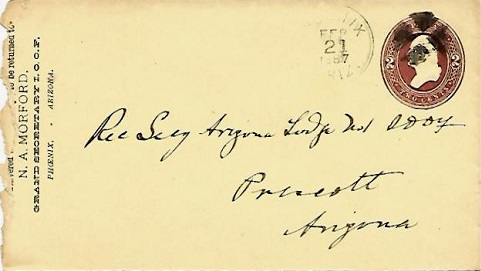 be returned to
N. A. MORFORD,
GRAND SECRETARY I. O. O. F.
PHŒNIX, - ARIZONA.
FEB
21
1887
ARIZ.
TWO CENTS
Rec Secy Arizona Lodge No 1 IOOF
Prescott
Arizona